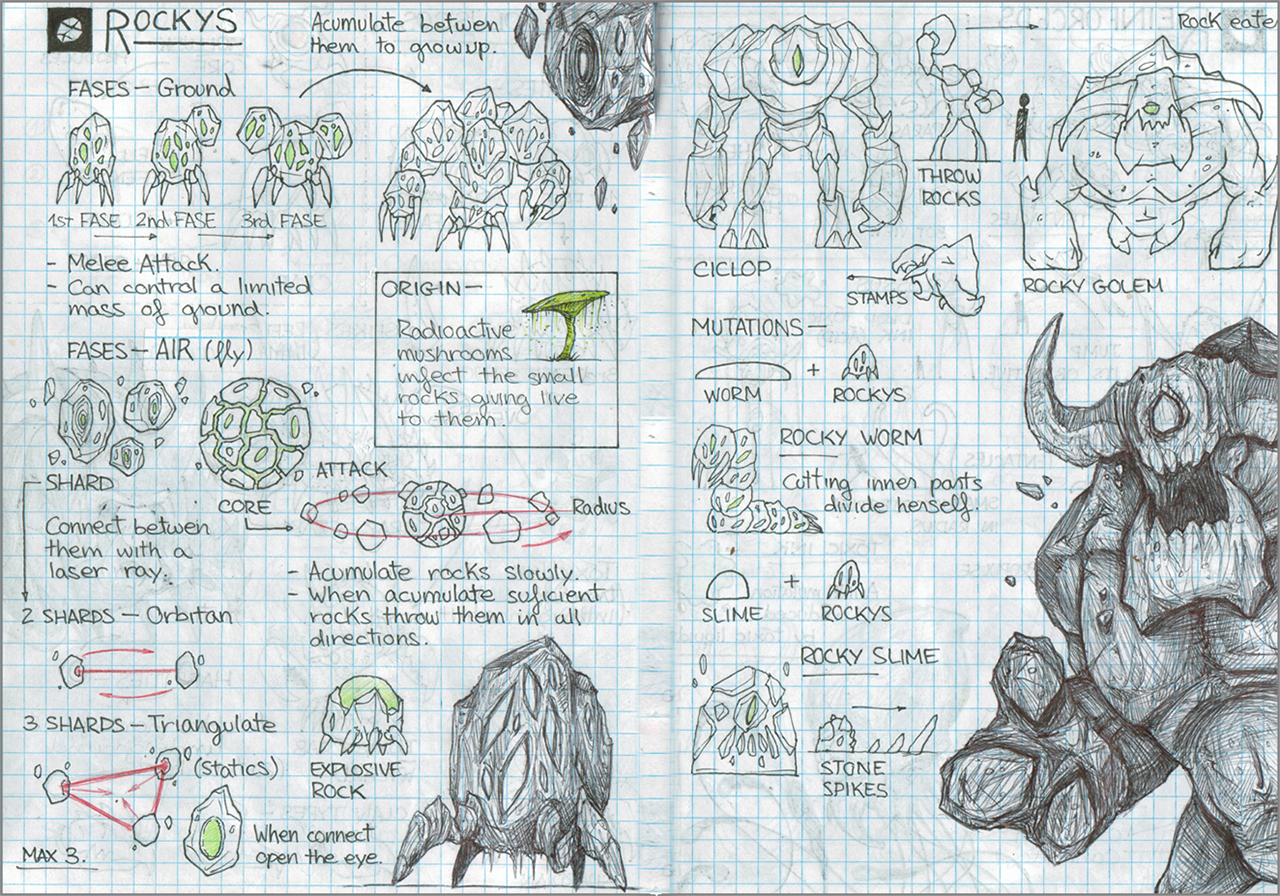 ROCKYS
Acumulate between
them to grow up.
FASES - Ground
1st FASE 2nd FASE 3rd FASE
- Melee Attack.
- Can control a limited
mass of ground.
ORIGIN-
Radioactive
mushrooms
infect the small
rocks giving live
to them.
FASES - AIR (fly)
SHARD
CORE
ATTACK
Radius
Connect between
them with a
laser ray.
- Acumulate rocks slowly.
- When acumulate suficient
rocks throw them in all
directions.
2 SHARDS - Orbitan
3 SHARDS - Triangulate
(statics)
MAX 3.
When connect
open the eye.
EXPLOSIVE
ROCK
Rock eate
THROW
ROCKS
CICLOP
STAMPS
ROCKY GOLEM
MUTATIONS -
WORM + ROCKYS
ROCKY WORM
Cutting inner parts
divide herself.
SLIME + ROCKYS
ROCKY SLIME
STONE
SPIKES